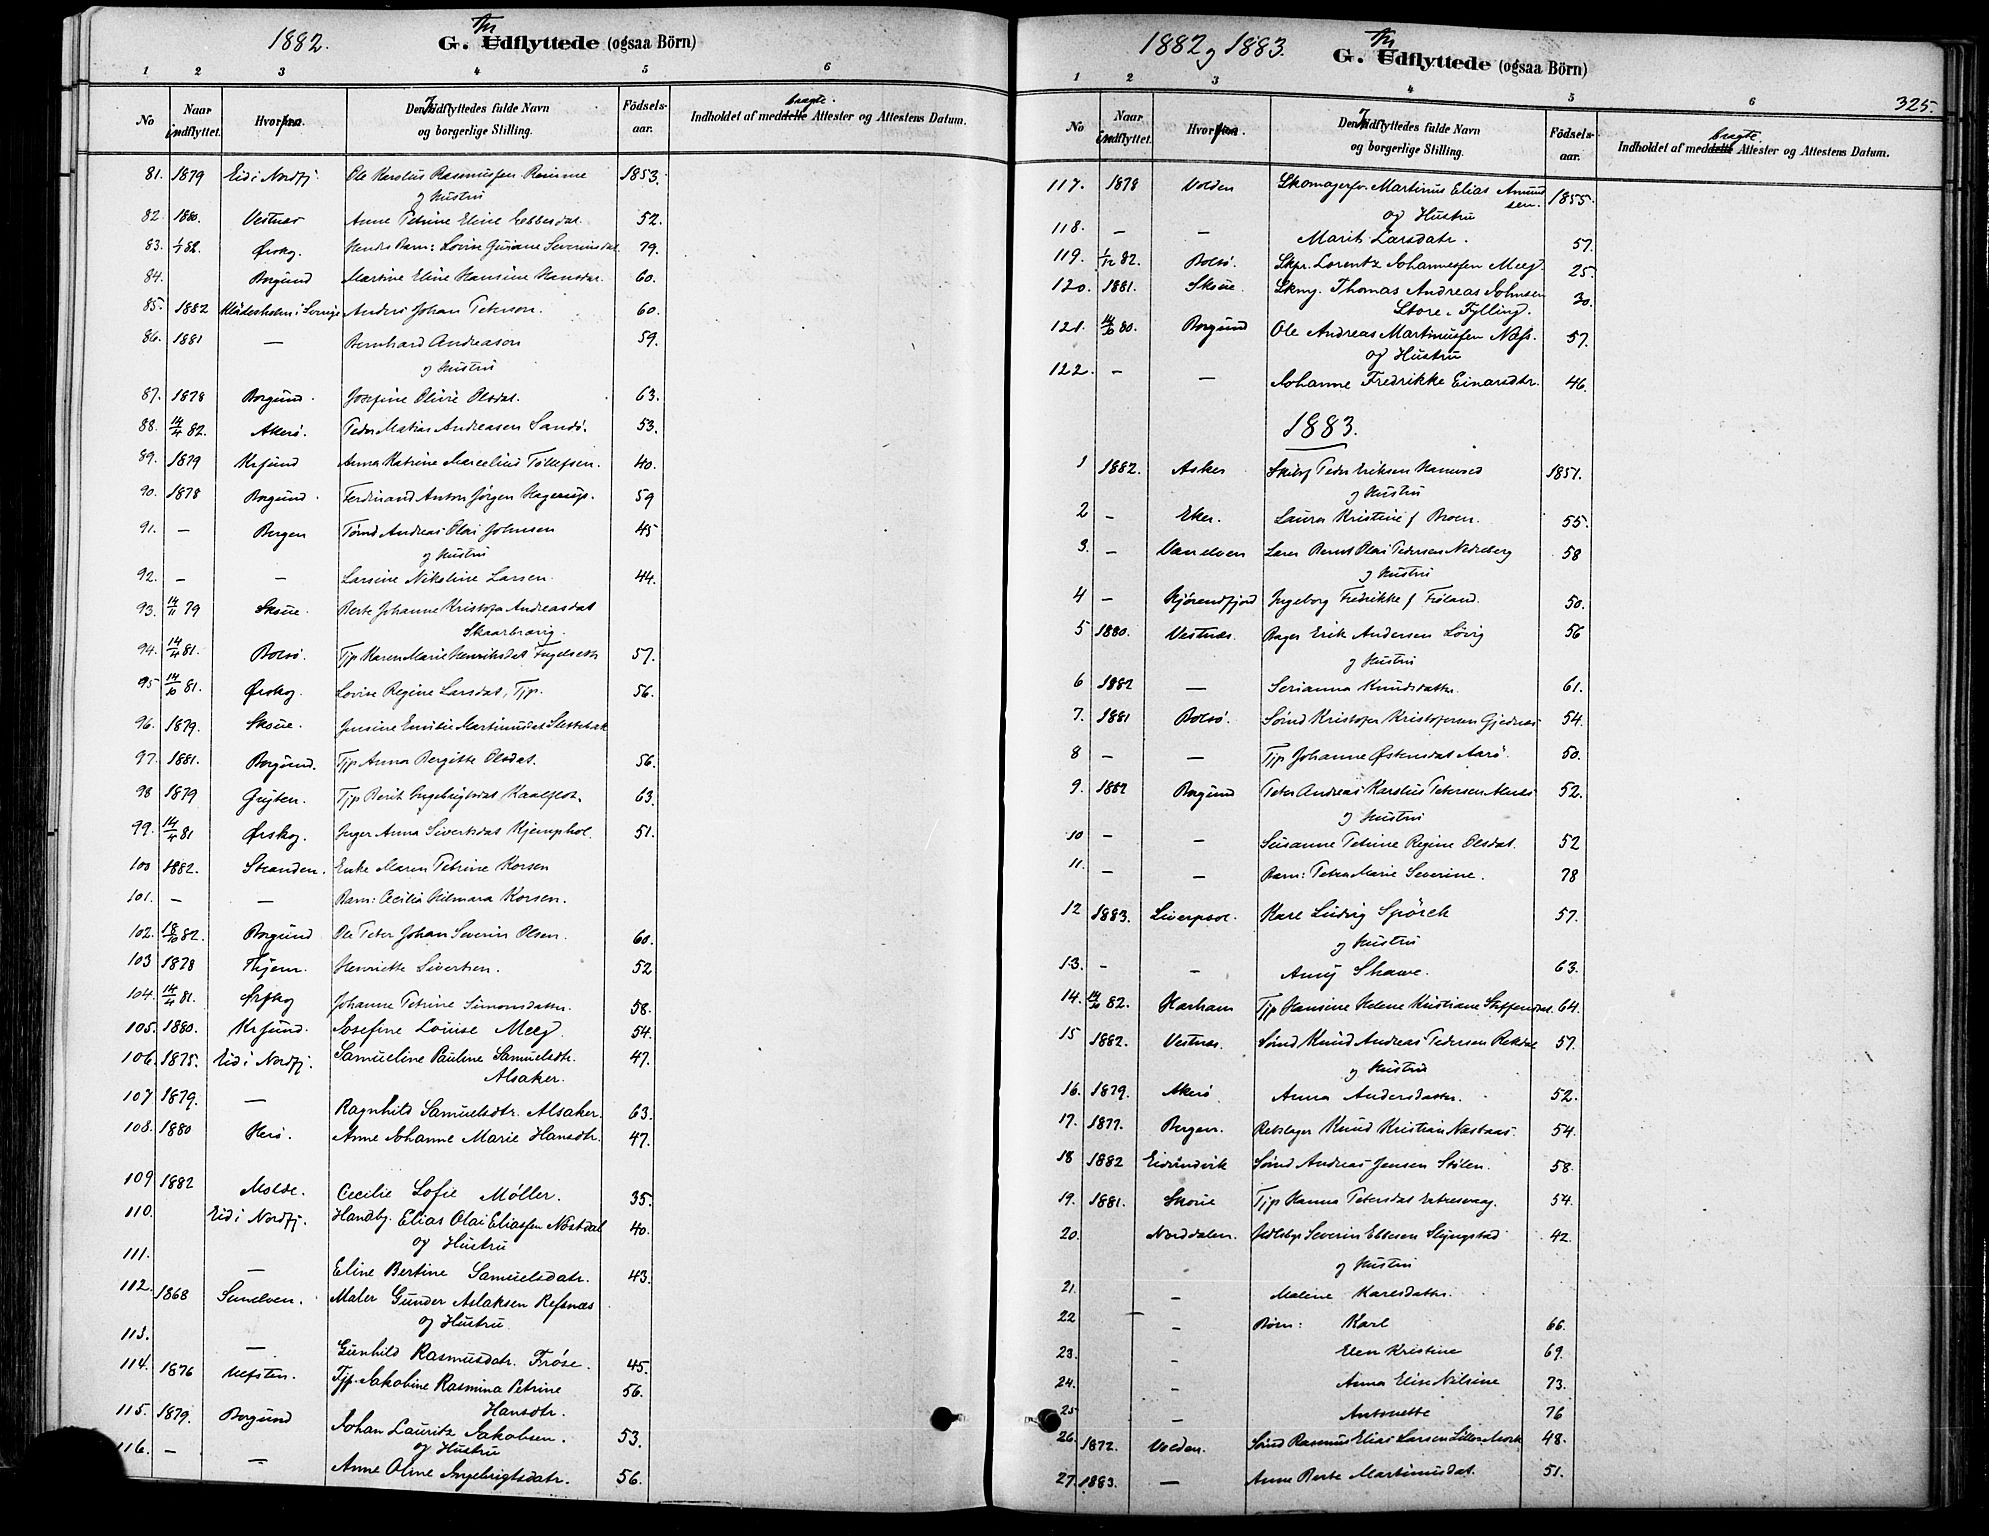 1882.
G. Udflyttede (ogsaa Börn)
1 2 3 4 5 6
No Naar indflyttet. Hvorfra. Den Indflyttedes fulde Navn og borgerlige Stilling. Födsels-aar. Indholdet af medbragte Attester og Attestens Datum.
81. 1879 Eid i Nordfj. Ole Karolus Rasmussen 1853.
og Hustru
82. 1880. Vestnæs Anne Petrine Eline 52.
83. 82. Ørskog. Lovise Severinsdat. 79.
84. Borgund Martine Eline Hansine Hansdat. 60.
85. 1882 Anders Johan Peterson. 60.
86. 1881 — Bernhard Andreason 59.
og Hustru
87. 1878 Borgund. Josefine Olivie Olsdat. 63.
88. 14/4 82. Akerø. Peder Matias Andreasen Sandø. 53.
89. 1879 Krsund Anna Katrine Marcelius Tollefsen. 40.
90. 1878 Borgund. Ferdinand Anton Jørgen Hagerup. 59
91. — Bergen Tømd Andreas Olai Johnsen 45
og Hustru
92. — — Larsine Nikoline Larsen. 44.
93. 14/11 79 Skoue. Berte Johanne Kristofa Andreasdat
94. 14/4 81. Bolsø. Tjp Karen Marie Henriksdat 57.
95 14/10 81. Ørskog. Lovise Regine Larsdat, Tjp. 56.
96. 1879. Skoue. Emilie Martinusdat
97. 1881. Borgund. Tjp Anna Bergitte Olsdat. 56.
98 1879 Grytten. Tjp Berit Ingebrigtsdat 63.
99. 14/4 81 Ørskog. Inger Anna Sivertsdat Kjemphol. 51.
100 1882. Stranden. Enke Maren Petrine Korsen
101. — — Barn: Cecilia Hilmara Korsen.
102. 18/10 82. Borgund Ole Peter Johan Severin Olsen. 60.
103 1878 Henriette Sivertsen. 52
104. 14/4 81. Ørskog Johanne Petrine Simonsdatter. 58.
105. 1880. Krsund. Josefine Louise Meeg. 54.
106. 1875. Eid i Nordfj. Samueline Pauline Samuelsdtr. 47.
Alsaker.
107 1879. — Ragnhild Samuelsdtr. Alsaker. 63.
108. 1880 Herø. Anne Johanne Marie Hansdtr. 47.
109 1882 Molde. Cecilie Sofie Møller. 35.
110. Eid i Nordfj. Handby. Elias Olai Eliassen Nøstdal 40.
og Hustru
111. — Eline Bertine Samuelsdatr. 43.
112. 1868 Sunelven. Maler Gunder Aslaksen Refsnæs
og Hustru
113. — Gunhild Rasmusdatr. Frøse. 45
114. 1876 Ulfsten. Tjp. Jakobine Rasmina Petrine 56.
Hansdtr.
115. 1879. Borgund Johan Lauritz Jakobsen. 53.
og Hustru
116. — — Anne Oline Ingebrigtsdatr. 56.
1882 og 1883.
G. Udflyttede (ogsaa Börn)
325.
1 2 3 4 5 6
No Naar indflyttet. Hvorfra. Den Indflyttedes fulde Navn og borgerlige Stilling. Födsels-aar. Indholdet af medbragte Attester og Attestens Datum.
117. 1878 Volden Skomagersv. Martinus Elias Amundsen. 1855.
og Hustru
118. — — Marit Larsdatr. 57.
119. 1/12 82. Bolsø. Skpr. Lorentz Johannessen Meeg. 25
120. 1881. Skoue. Skmg. Thomas Andreas Johnsen 30.
Store-Fylling.
121. 14/10 80. Borgund Ole Andreas Martinussen Næss. 57.
og Hustru
122. — — Johanne Fredrikke Einarsdtr. 46.
1883.
1 1882. Asker Peder Eriksen 1851.
og Hustru
2 — Eker. Laura Kristine f Broen. 55.
3. — Vanelven Lærer Bernt Olai Pedersen Nedreberg 58
og Hustru
4 — Hjørendfjord Ingeborg Fredrikke f Frøland. 50.
5 1880. Vestnæs. Bager Erik Andersen Løvig 56
og Hustru
6 1882 — Serianna Knudsdatter. 61.
7. 1881 Bolsø. Sømd Kristofer Kristofersen Gjednæs 54.
8 — — Tjp Johanne Østensdat Aarø. 50.
9. 1882 Borgund Peter Andreas Karolus Petersen Alnæs 52.
og Hustru
10 — — Susanne Petrine Regine Olsdat. 52
11. — — Barn: Petra Marie Severine. 78
12 1883. Liverpool. Karl Ludvig Spörck 57.
og Hustru
13. — — Amy Shawe. 63.
14. 14/10 82. Harham Tjp Hansine Helene Kristiane Steffensdat. 64.
15 1882. Vestnæs. Sømd Knud Andreas Pedersen Rekdal 57.
og Hustru
16. 1879. Akerø Anna Andersdatter. 52.
17. 1877. Bergen. Rebslager Knud Kristian Næstaas. 54.
18 1882 Eidsundvik Sømd Andreas Jensen Stølen. 58.
19. 1881. Skoue Tjp Hanna Petersdat 54.
20. Norddalen. Severin Ebbesen Slyngstad 42.
og Hustru
21. — Malene Karlsdatter.
22 — Børn: Karl 66.
23. — Elen Kristine 69.
24. — Anna Elise Nilsine 73.
25 — Antonette 76
26. 1872. Volden. Sømd Rasmus Elias Larsen Lille-Mork 48.
27. 1883. — Anne Berte Martinusdat. 51.